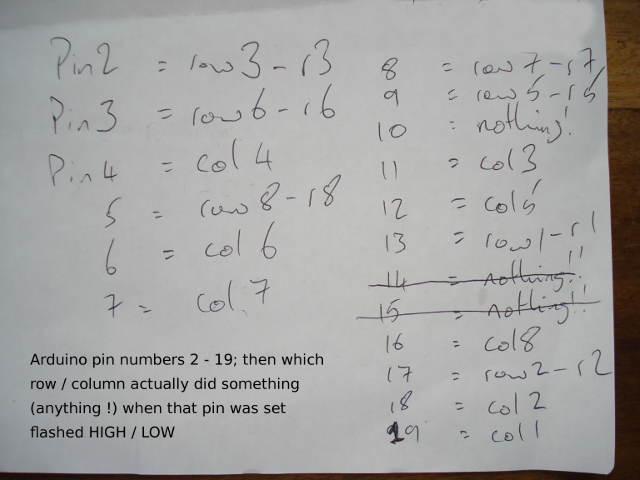 Pin2 = row3-r3
Pin3 = row6-r6
Pin4 = col4
5 = row8-r8
6 = col6
7 = col.7
8 = row7-r7
9 = row5-r5
10 = nothing!
11 = col3
12 = col5
13 = row1-r1
14 = nothing!!
15 = nothing!!
16 = col8
17 = row2-r2
18 = col2
19 = col1
Arduino pin numbers 2 - 19; then which
row / column actually did something
(anything !) when that pin was set
flashed HIGH / LOW